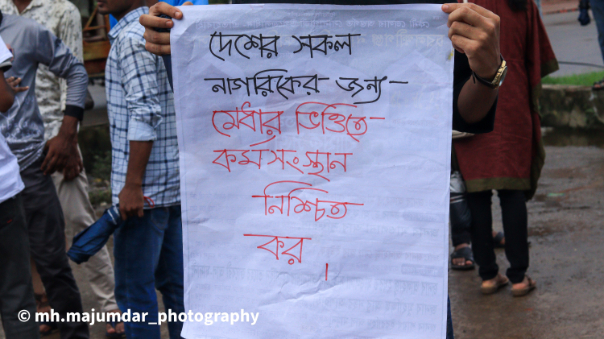 দেশের সকল
নাগরিকের জন্য -
মেধার ভিত্তিতে -
কর্মসংস্থান
নিশ্চিত
কর ।
© mh.majumdar_photography